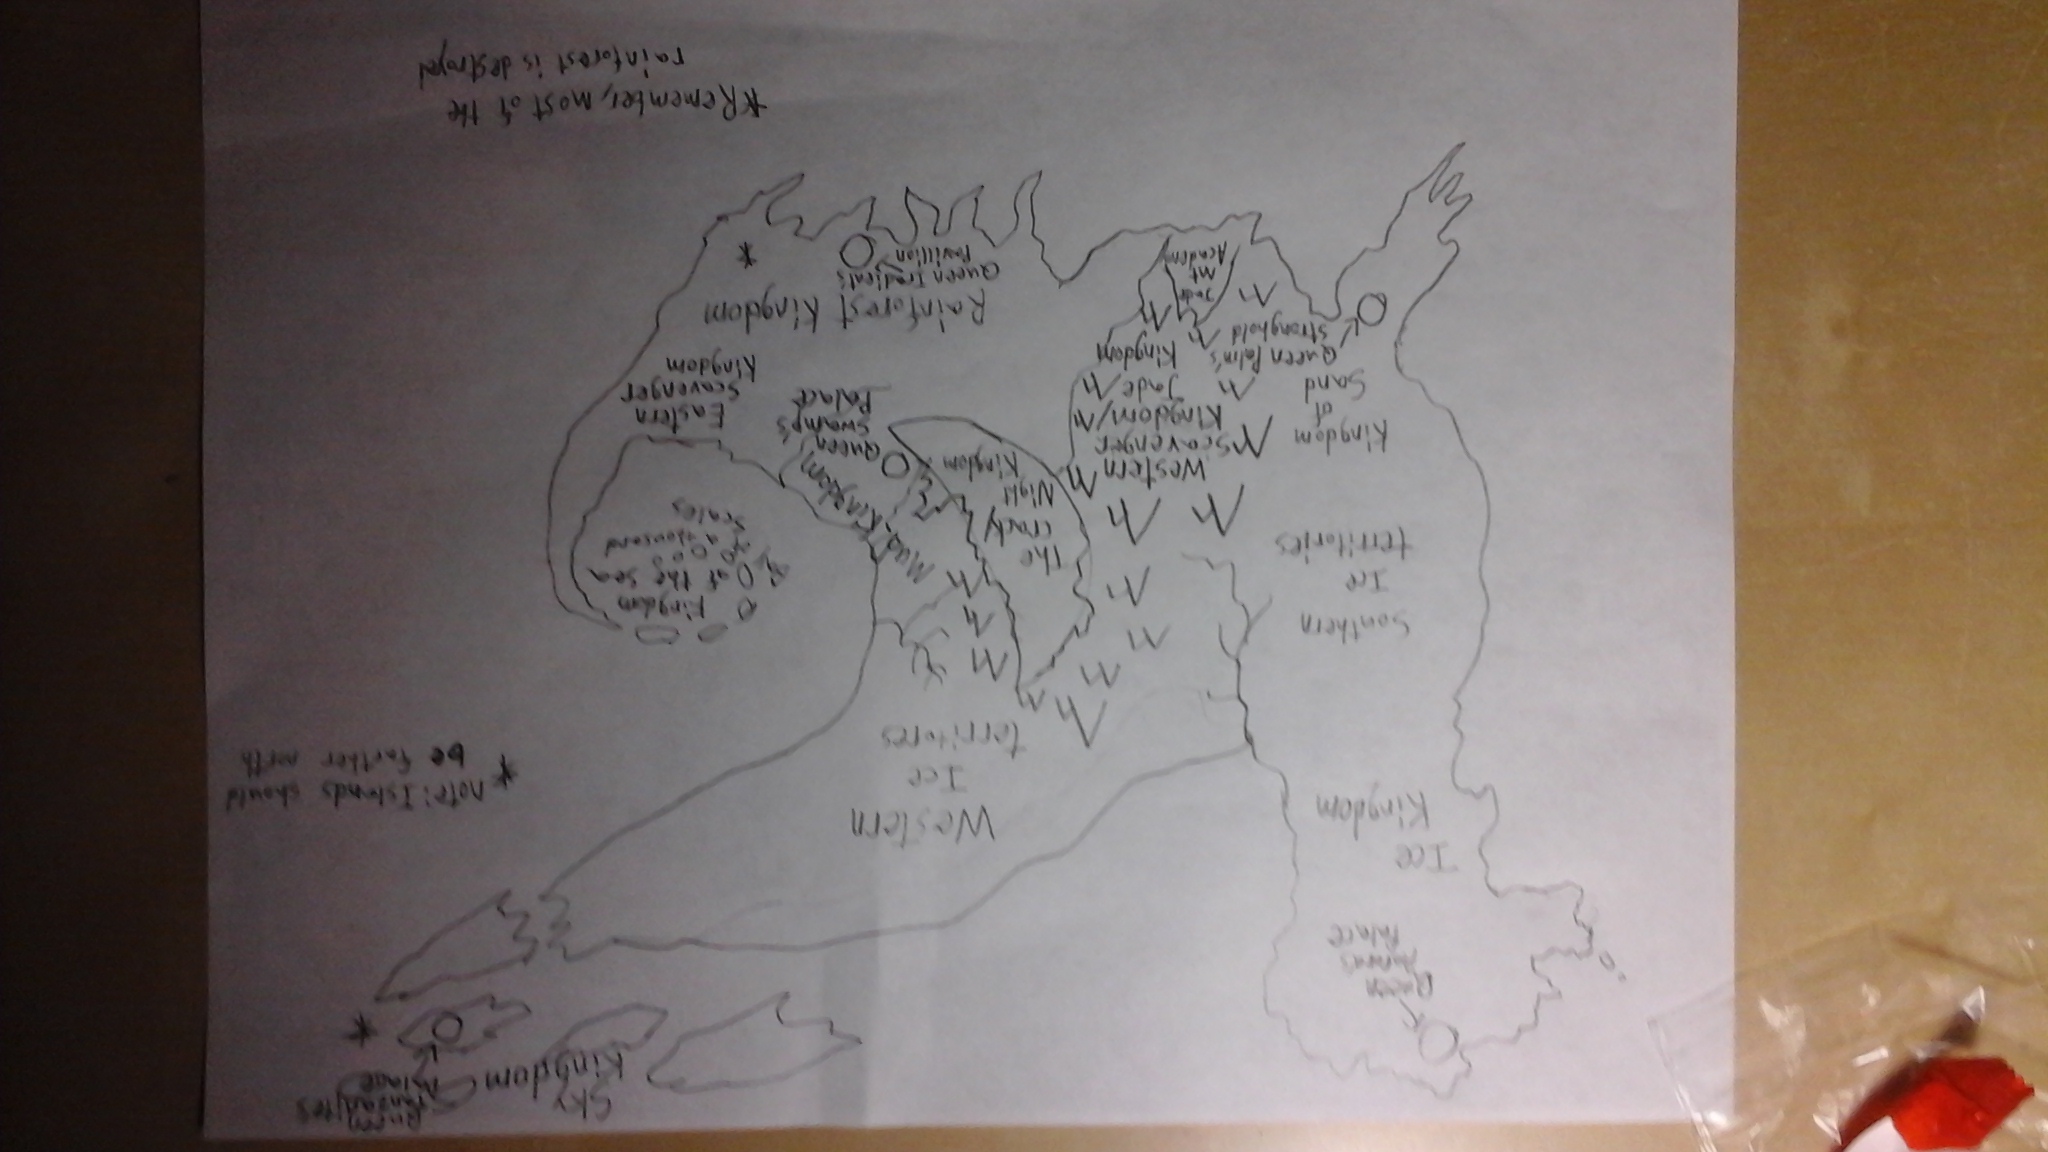 Queen
Tanzanite's
Palace
Sky
Kingdom
Queen
Palace
Ice
Kingdom
Western
Ice
territores
*note: Islands should
be farther north
Southern
Ice
territories
Kingdom
of the sea
of a thousand
scales
Mud Kingdom
The
cracky
Night
Kingdom
Western
Scavenger
Kingdom/
Jade
Kingdom
Kingdom
of
Sand
Queen Palm's
Stronghold
Queen
Swamp's
Palace
Eastern
Scavenger
Kingdom
Rainforest Kingdom
Queen
Pavillion
Jade
Mt
Academy
*Remember, most of the
rainforest is destroyed